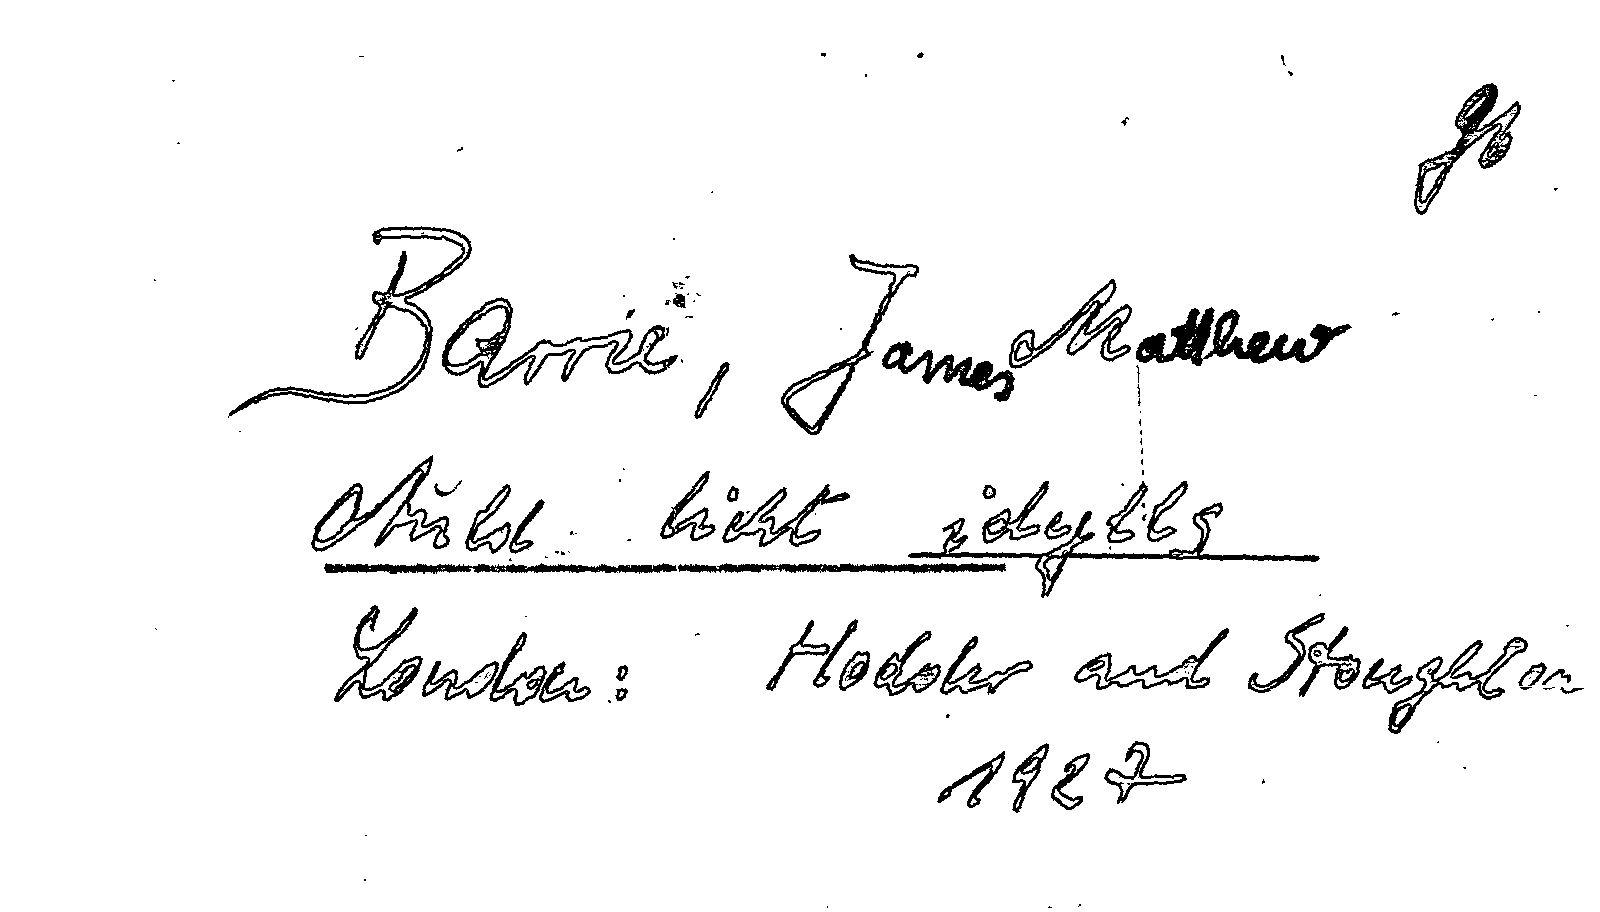 Barrie, James Matthew
Auld licht idylls
London: Hodder and Stoughton
1927